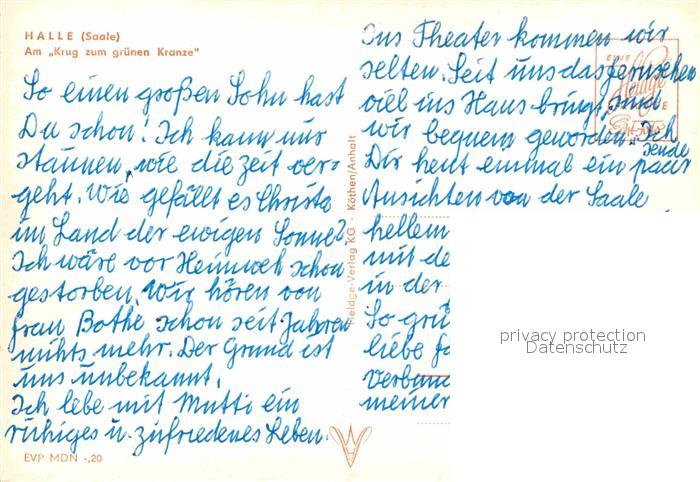 HALLE (Saale)
Am „Krug zum grünen Kranze"
So einen großen Sohn hast
Du schon! Ich kann nur
staunen, wie die Zeit ver-
geht. Wie gefällt es Christa
im Land der ewigen Sonne?
Ich wäre vor Heimweh schon
gestorben. Wir hören von
Frau Bothe schon seit Jahren
nichts mehr. Der Grund ist
uns unbekannt.
Ich lebe mit Mutti ein
ruhiges u. zufriedenes Leben.
EVP MDN -,20
Reldge-Verlag KG · Köthen/Anhalt
Ins Theater kommen wir
selten. Seit uns das Fernsehen
viel ins Haus bringt, sind
wir bequem geworden. Ich
sende
Dir heut einmal ein paar
Ansichten von der Saale
hellem
mit de
in der
So grü
liebe
Verbund
meiner
EINE
privacy protection
Datenschutz